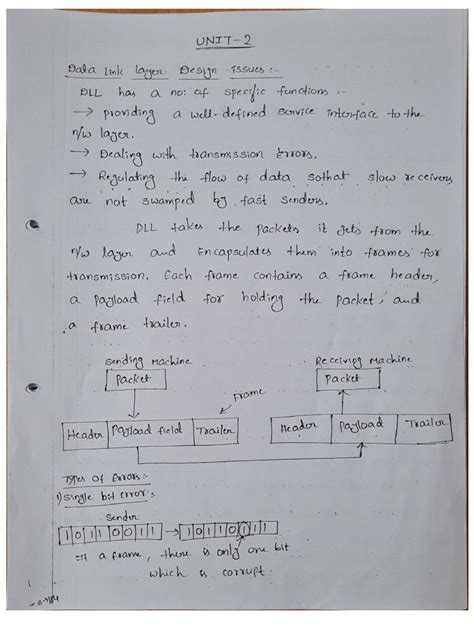 UNIT-2
Data link layer Design issues :-
DLL has a no: of specific functions :-
→ providing a well-defined service interface to the
n/w layer.
→ Dealing with transmission Errors.
→ Regulating the flow of data sothat slow receivers
are not swamped by fast senders.
DLL takes the packets it gets from the
n/w layer and Encapsulates them into frames for
transmission. Each frame contains a frame header,
a payload field for holding the packet, and
a frame trailer.
Sending Machine
Receiving Machine
Packet
Packet
Frame
Header Payload field Trailer
Header Payload Trailer
Types of Errors :-
1) Single bit error :-
Sender
1 0 1 1 0 0 1 1 → 1 0 1 1 0 1 1 1
a frame, there is only one bit
which is corrupt.